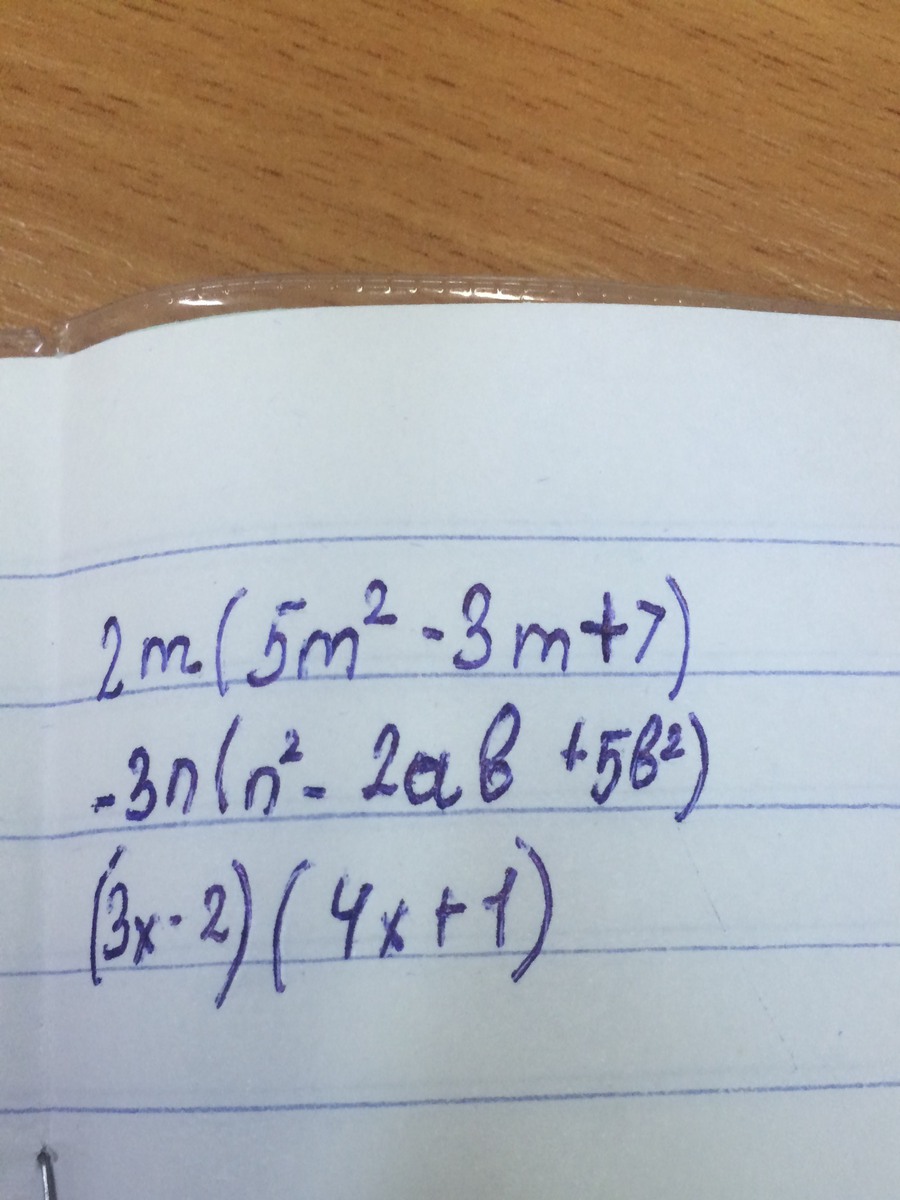 2m(5m² - 3m + 7)
-3n(n² - 2ab + 5b²)
(3x - 2)(4x + 1)